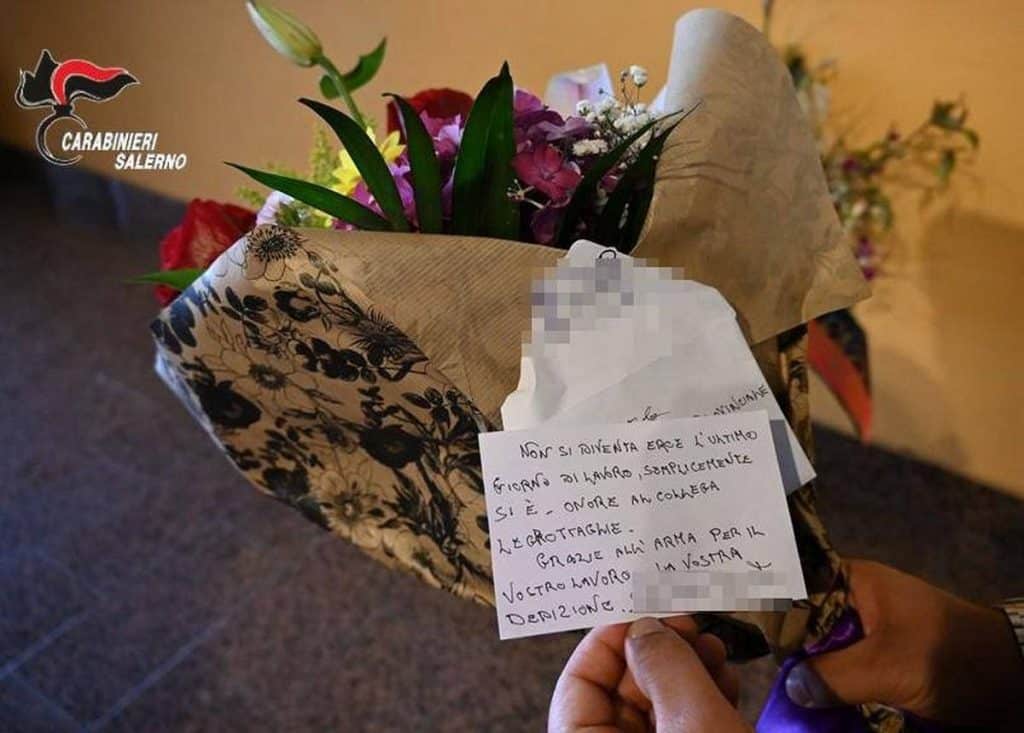 CARABINIERI
SALERNO
PROVINCIALE
NON SI DIVENTA EROE L'ULTIMO
GIORNO DI LAVORO, SEMPLICEMENTE
SI È - ONORE AL COLLEGA
LEGROTTAGLIE.
GRAZIE ALL'ARMA PER IL
VOSTRO LAVORO LA VOSTRA
DEDIZIONE.